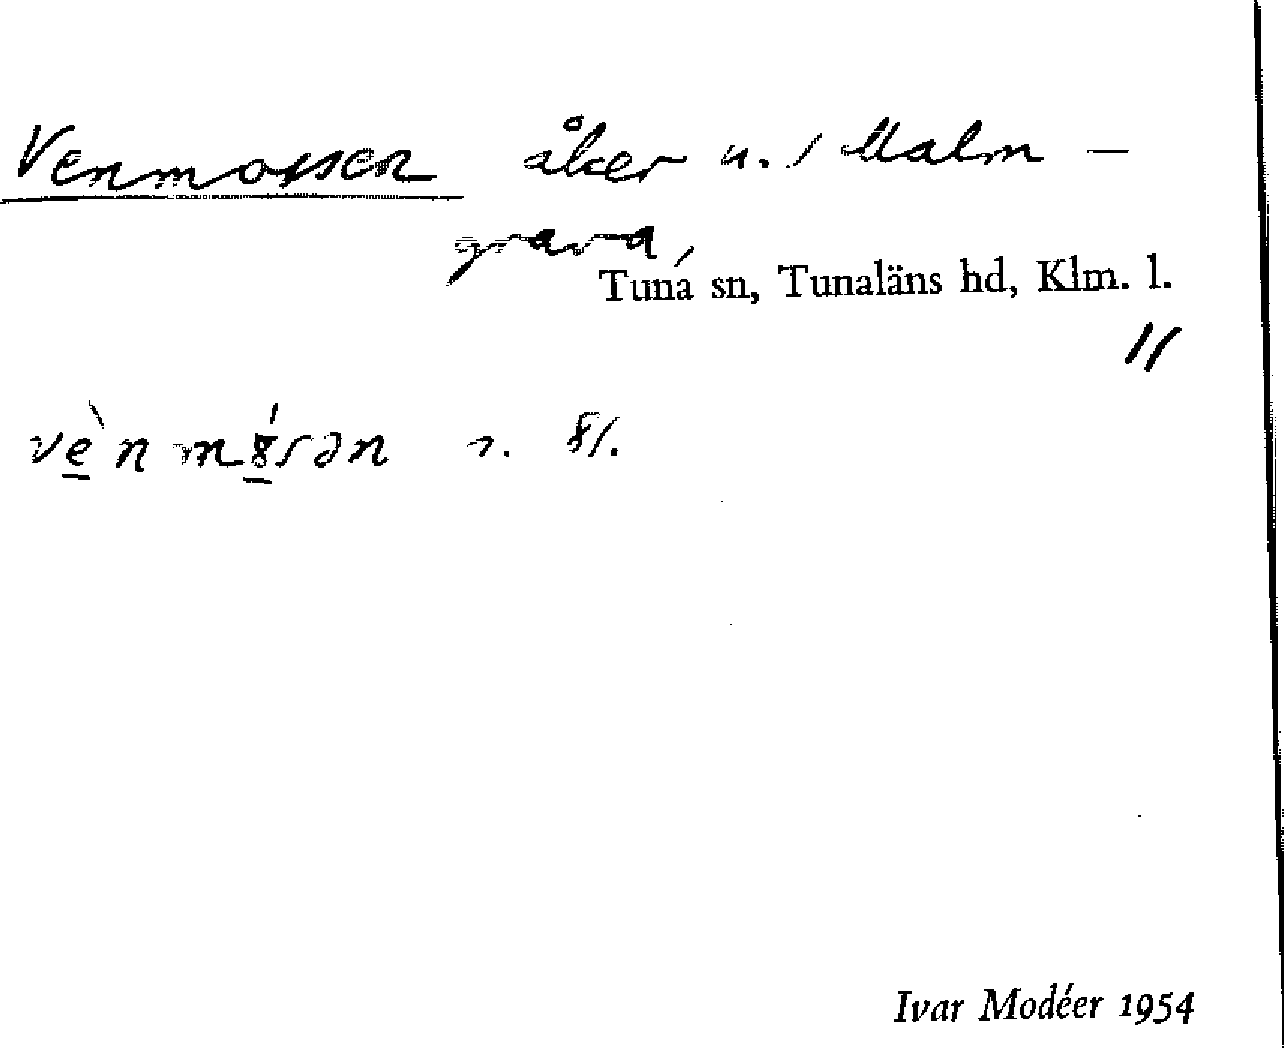 Venmossen åker u. / Malm –
grava,
Tuna sn, Tunaläns hd, Klm. l.
vèn
Ivar Modéer 1954